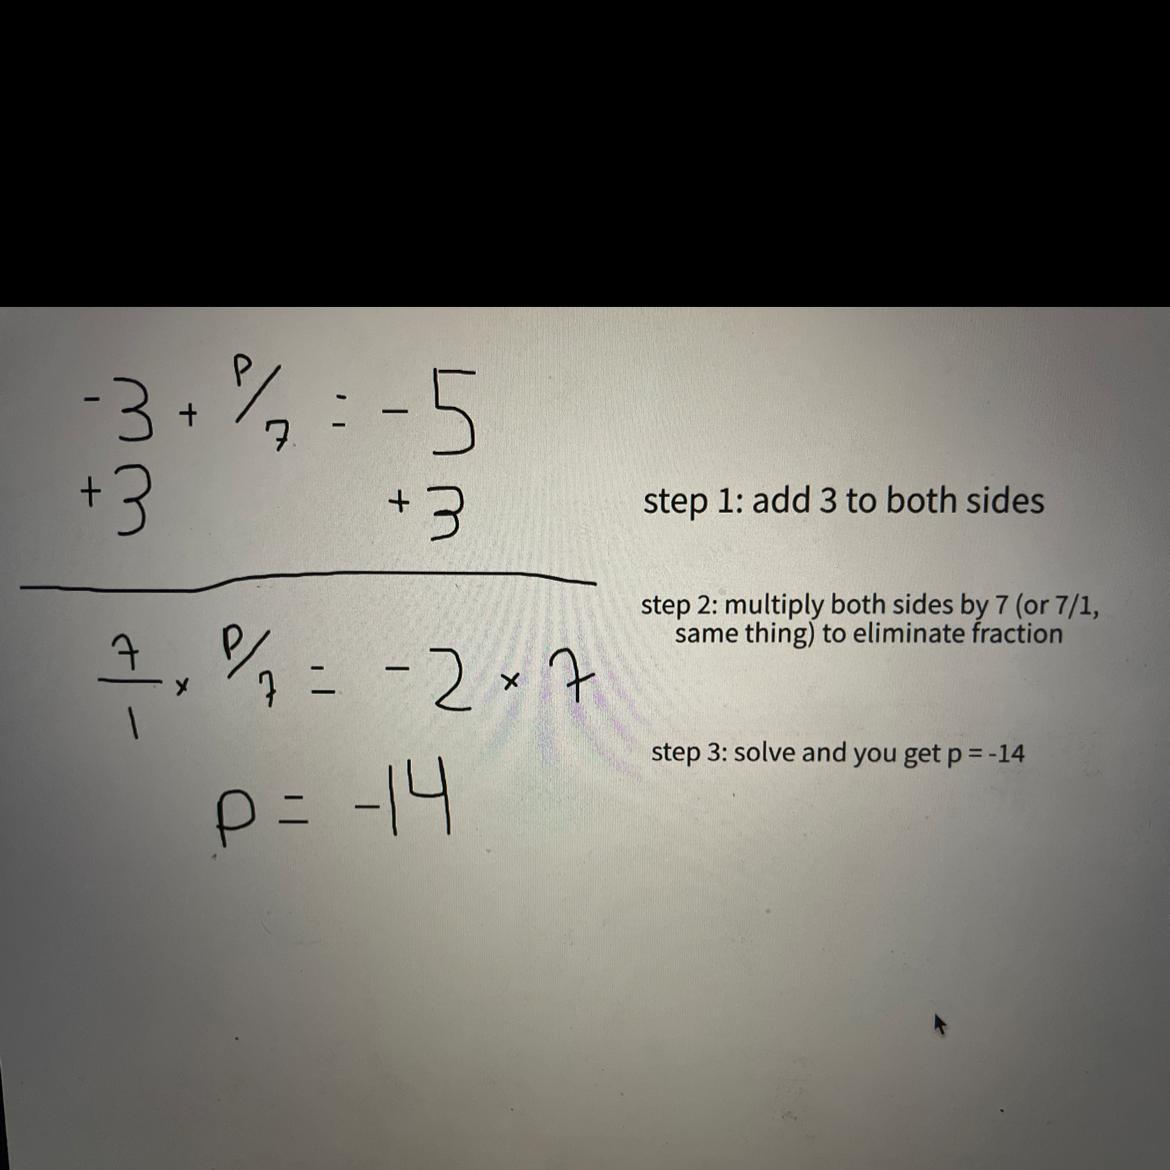 -3 + P/7 = -5
+3 +3
step 1: add 3 to both sides
step 2: multiply both sides by 7 (or 7/1,
same thing) to eliminate fraction
7/1 × P/7 = -2 × 7
step 3: solve and you get p = -14
p = -14